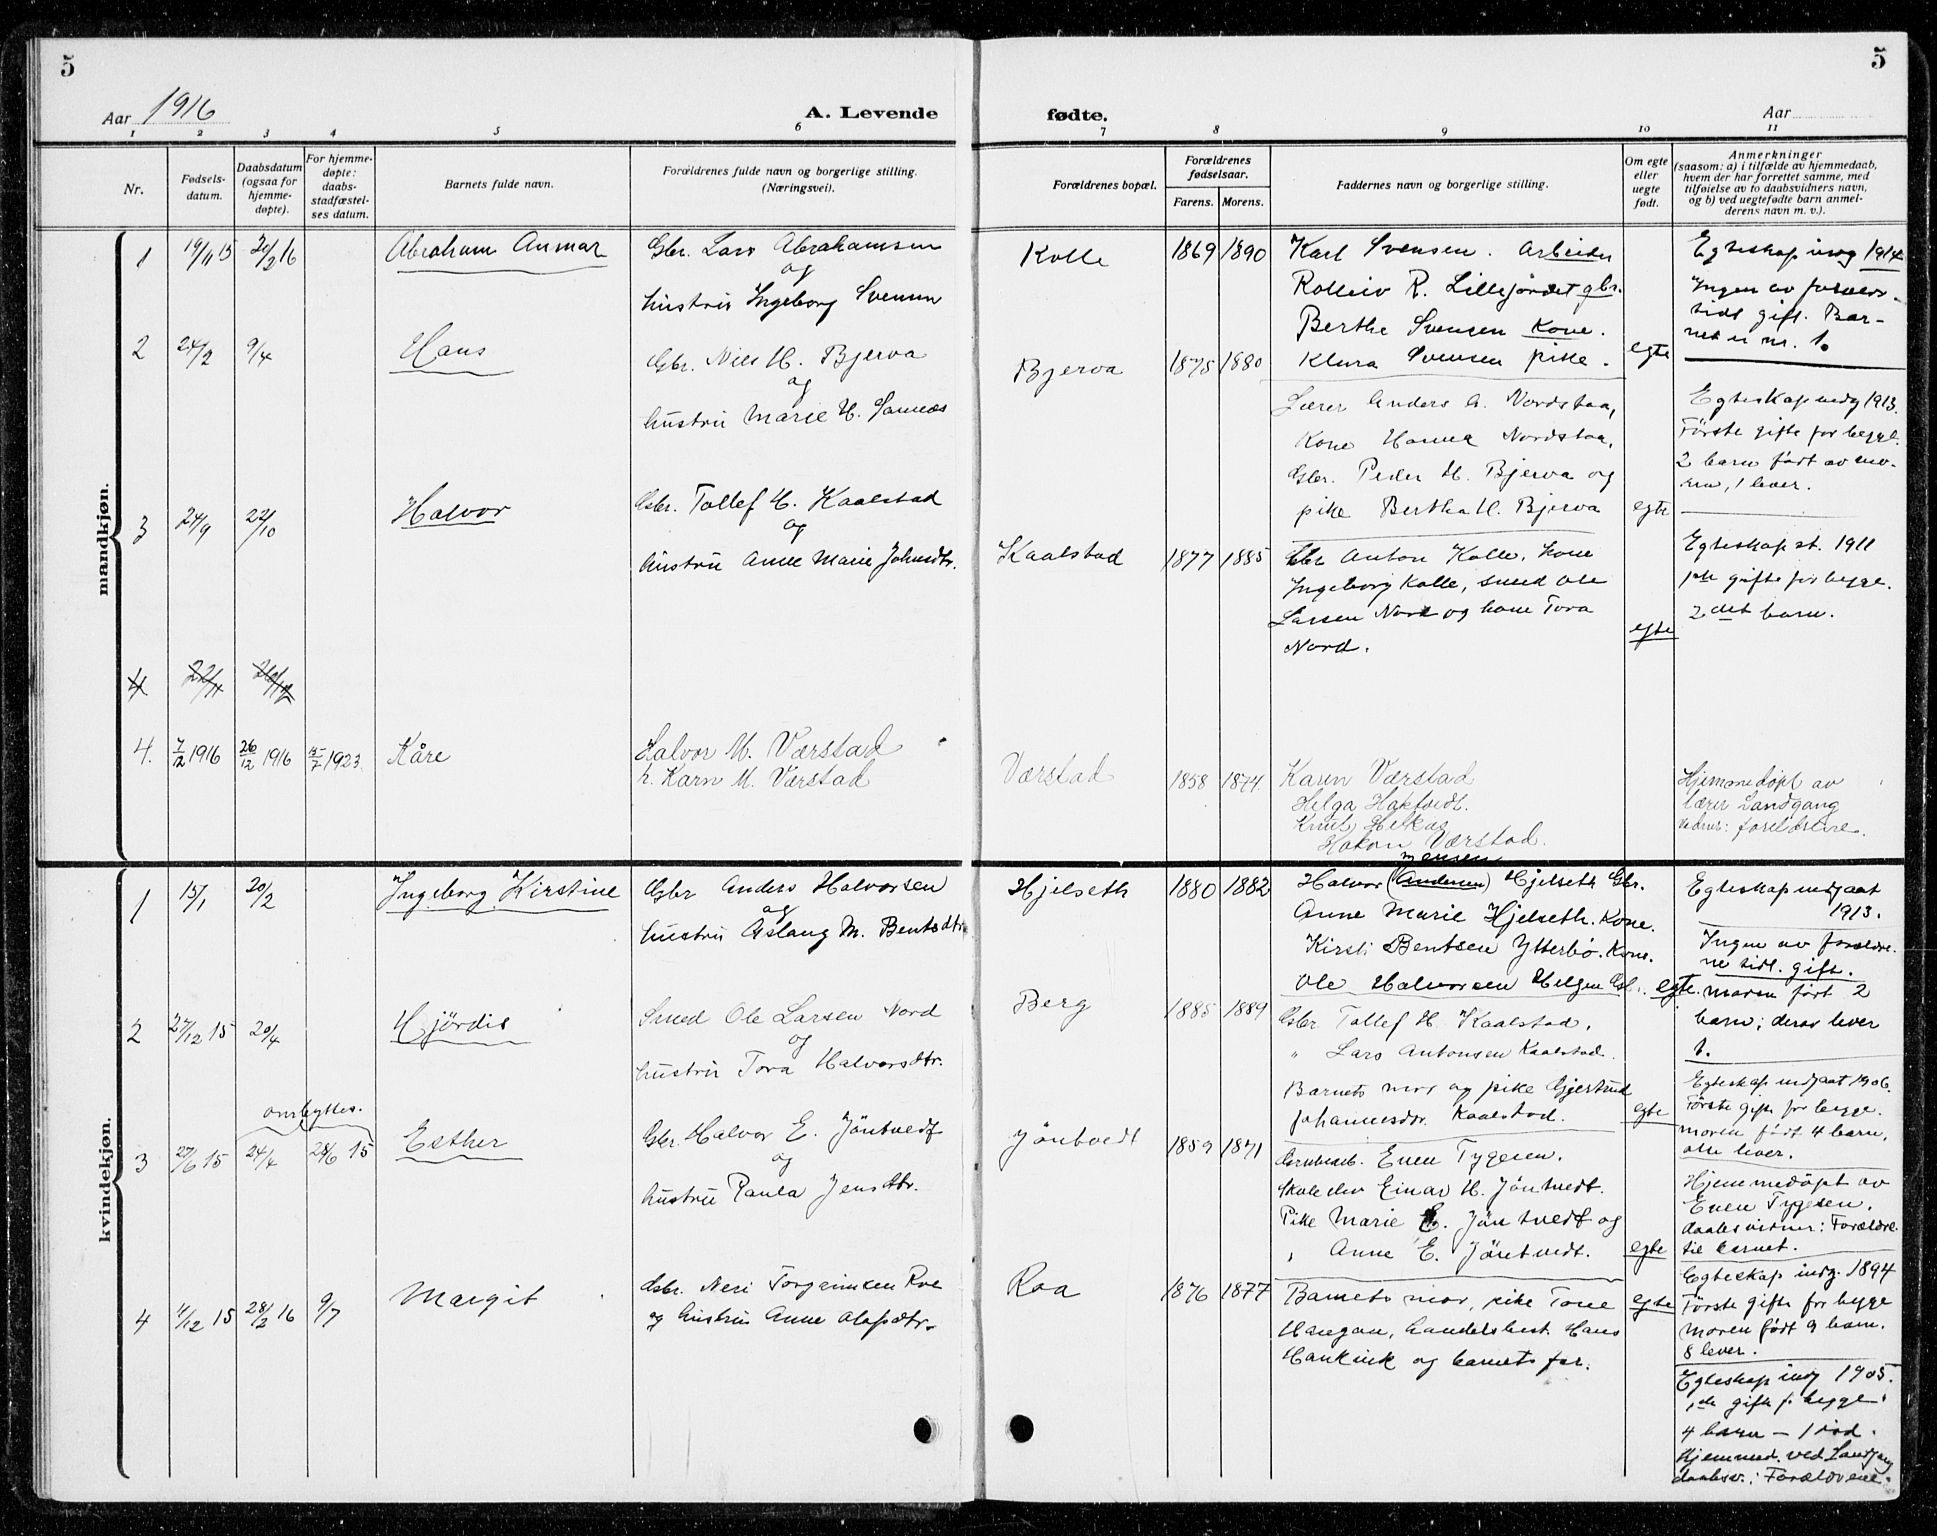 5
5
Aar 1916
A. Levende
fødte.
Aar
1 2 3 4 5 6 7 8 9 10 11
Nr.
Fødsels-
datum.
Daabsdatum
(ogsaa for
hjemme-
døpte).
For hjemme-
døpte:
daabs-
stadfæstel-
ses datum.
Barnets fulde navn.
Forældrenes fulde navn og borgerlige stilling.
(Næringsvei).
Forældrenes bopæl.
Forældrenes
fødselsaar.
Farens. Morens.
Faddernes navn og borgerlige stilling.
Om egte
eller
uegte
født.
Anmerkninger
(saasom: a) i tilfælde av hjemmedaab,
hvem der har forrettet samme, med
tilføielse av to daabsvidners navn,
og b) ved uegtefødte barn anmel-
derens navn m. v.).
mandkjøn.
1 19/11 15 20/2 16 Abraham Anmar
Gbr. Lars Abrahamsen
og
hustru Ingeborg Svensen
Kolle 1869 1890
Karl Svensen. Arbeider
Rolleiv R. Lillejördet gbr.
Berthe Svensen Kone.
Klara Svensen pike.
egte
Egteskap inng 1914
Ingen av forældr.
tidl gift. Bar-
net er nr. 1.
2 24/2 9/4 Hans
Gbr. Niels H. Bjerva
og
hustru Marie H. Sannes
Bjerva 1875 1880
Lærer Anders A. Nordstaa,
Kone Hanna Nordstaa,
Gbr. Peder H. Bjerva og
pike Bertha H. Bjerva
egte
Egteskap indg 1913.
Förste gifte for begge.
2 barn født av mo-
ren, 1 lever.
3 24/9 22/10 Halvor
Gbr. Tollef H. Kaalstad
og
hustru Anne Marie Johnsdtr.
Kaalstad 1877 1885
Gbr Anton Kolle, kone
Ingeborg Kolle, smed Ole
Larsen Nord og kone Tora
Nord.
egte
Egteskap st. 1911
1ste gifte for begge.
2det barn.
4 22/11 26/12
4. 7/12 1916 26/12 1916 15/7 1923 Kåre
Halvor M. Værstad
h. Karn M. Værstad
Værstad 1858 1874.
Karen Værstad
Helga Haktvedt.
Knut Helkås
Håkon Værstad.
Hjemmedöpt av
lærer Landgang
Vidner: foreldrene.
kvindekjøn.
1 15/1 20/2 Ingeborg Kirstine
Gbr Anders Halvorsen
og
hustru Aslaug M. Bentsdtr.
Hjelseth 1880 1882
Jensen
Halvor (Andersen) Hjelseth Gbr.
Anne Marie Hjelseth. Kone.
Kirsti Bentsen Ytterbö. Kone.
Ole Halvorsen Helgen Gbr.
egte.
Egteskap indgaat
1913.
Ingen av forældre-
ne tidl. gift.
Moren født 2
barn; derav lever
1.
2 27/12 15 20/4 Hjördis
Smed Ole Larsen Nord
og
hustru Tora Halvorsdtr.
Berg 1885 1889
Gbr. Tollef H. Kaalstad.
" Lars Antonsen Kaalstad.
Barnets mor og pike Gjertrud
Johannesdtr. Kaalstad.
egte
Egteskap indgaat 1906.
Förste gifte for begge.
Moren født 4 barn,
alle lever.
ombyttes.
3 27/6 15 24/4 28/6 15 Esther
Gbr. Halvor E. Jöntvedt
og
hustru Paula Jensdtr.
Jöntvedt 1859 1871
Grubearb. Even Tygesen.
Skoleelev Einar H. Jöntvedt.
Pike Marie E. Jöntvedt og
" Anne E. Jöntvedt.
egte
Hjemmedöpt av
Even Tygesen.
daabsvidner: Forældre
til barnet.
Egteskap indg. 1894
Förste gifte for begge
Moren født 9 barn.
8 lever.
4 11/12 15 28/2 16 9/7 Margit
Gbr. Neri Torgrimsen Roe
og hustru Anne Olafsdtr.
Roa 1876 1877
Barnets mor, pike Tone
Haugan, handelsbest. Hans
Haukvik og barnets far.
egte
Egteskap indg 1905.
1ste gifte f. begge.
4 barn – 1 död.
Hjemmed. ved Landgang
daabsv.: Forældrene.